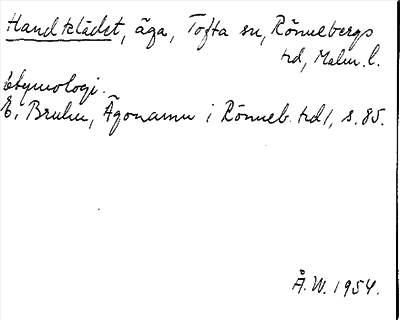 Handklädet, äga, Tofta sn, Rönnebergs
hd, Malm. l.
Etymologi.
E. Bruhn, Ägonamn i Rönneb. hd 1, s. 85.
Å. W. 1954.